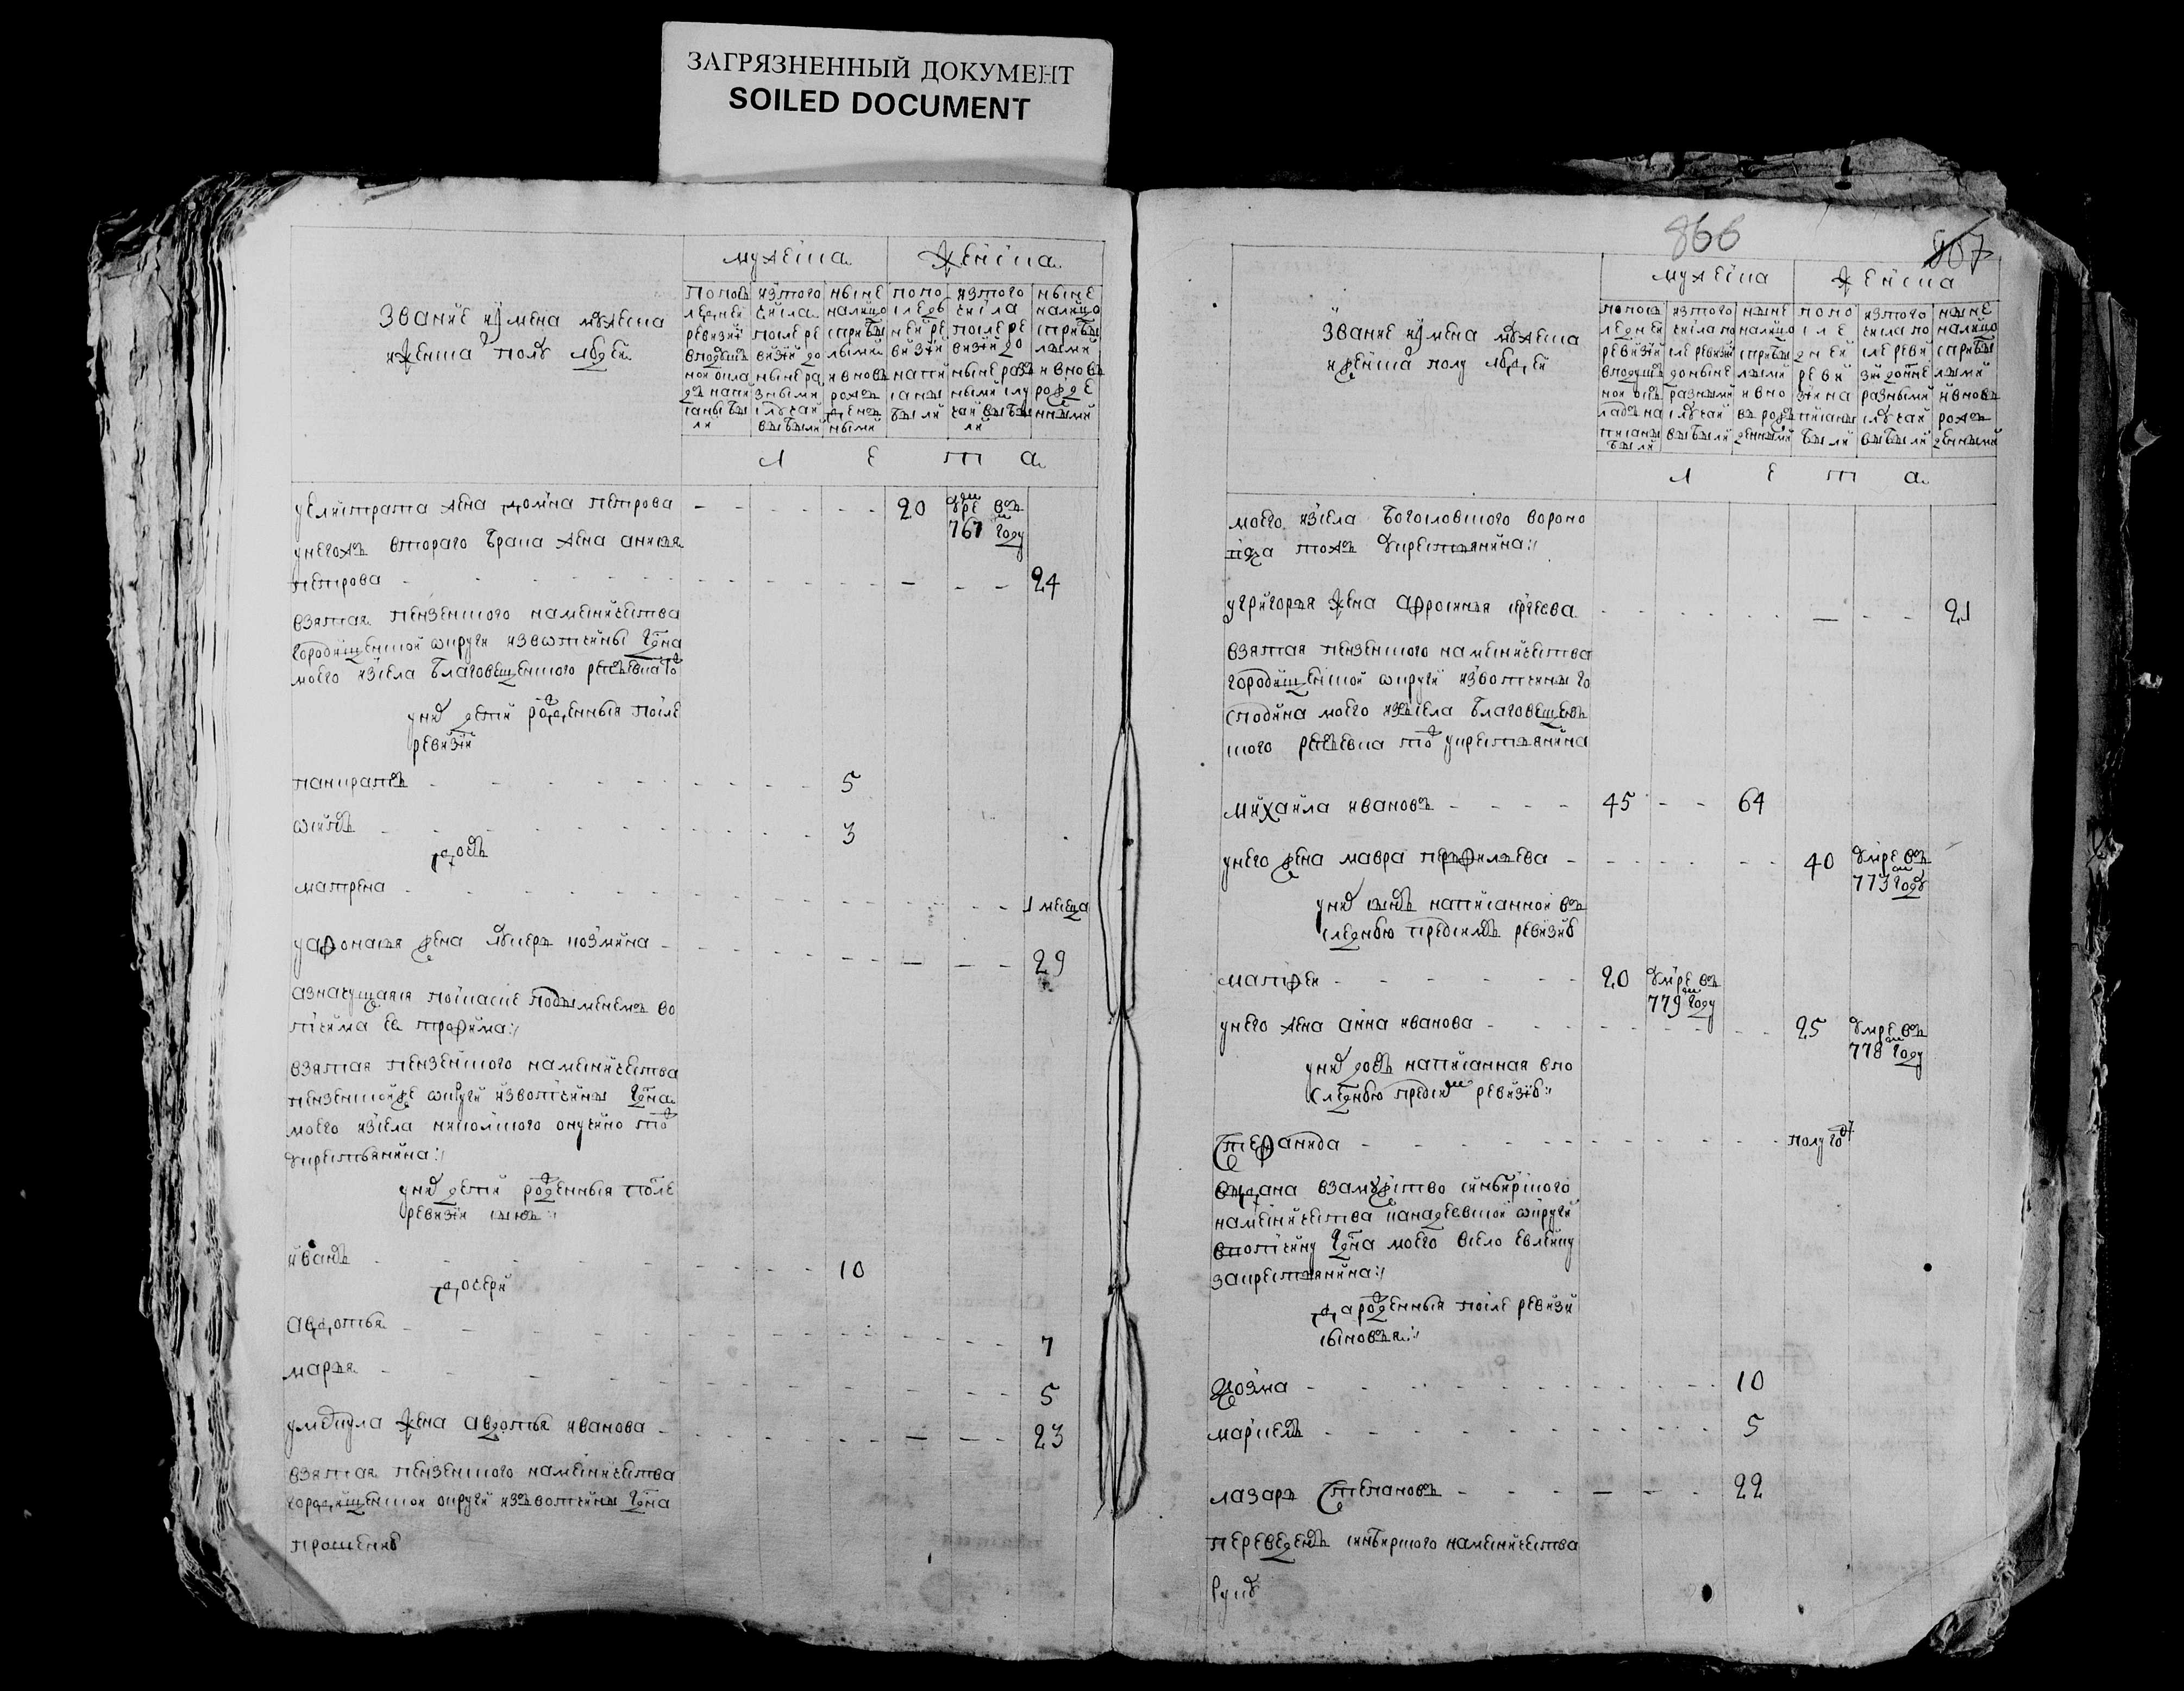 ЗАГРЯЗНЕННЫЙ ДОКУМЕНТ
SOILED DOCUMENT
866
867
мужеска
женска
звание и имена мужеска
и женска полу людей
по последней ревизии в подушной оклад написаны были
из того числа после ревизии до ныне разными случаи выбыли
ныне налицо с прибылыми и вновь рожденными
по последней ревизии написаны были
из того числа после ревизии до ныне разными случаи выбыли
ныне налицо с прибылыми и вновь рожденными
л е т а
у елистрата жена домна петрова 20 умре въ 767м году
у негожъ втораго брака жена анисья
петрова 24
взятая пензенского намесничества
городищенской округи из вотчины
моего из села благовещенского
у них дети рожденныя после
ревизии
панкратъ 5
осипъ 3
дочь
матрена 1 месеца
у афонасья жена лукерья козмина 29
взятая пензенского намесничества
пензенской же округи из вотчины
моего из села никольского
у крестьянина
у них дети рожденныя после
ревизии сынъ
иванъ 10
дочери
авдотья 7
марья 5
у микула жена авдотья иванова 23
взятая пензенского намесничества
городищенской округи изъ вотчины
прошению
мужеска
женска
звание и имена мужеска
и женска полу людей
по последней ревизии в подушной оклад написаны были
из того числа после ревизии до ныне разными случаи выбыли
ныне налицо с прибылыми и вновь рожденными
по последней ревизии написаны были
из того числа после ревизии до ныне разными случаи выбыли
ныне налицо с прибылыми и вновь рожденными
л е т а
моего из села богословского
у крестьянина
у григорья жена афросинья 21
взятая пензенского намесничества
городищенской округи из вотчины го
сподина моего изъ села благовещенъ
ского у крестьянина
михаила ивановъ 45 64
у него жена мавра перфильева 40 умре въ 773м году
у них сынъ написанной въ
последнюю пред симъ ревизию
матфеи 20 умре въ 779м году
у него жена анна иванова 25 умре въ 778м году
у них дочь написанная в по
следнюю пред сим ревизию
степанида полугод
выдана в замужство синбирского
намесничества канадеевской округи
в вотчину моего в село
за крестьянина
да рожденныя после ревизии
сыновья
козма 10
маркелъ 5
лазарь степановъ 22
переведенъ синбирского намесничества